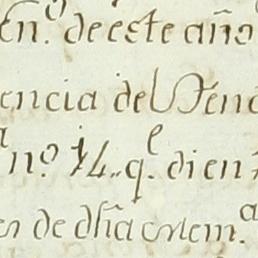 En.º de este año
encia del Ven
nº. 14,, q.e dien
en de dha